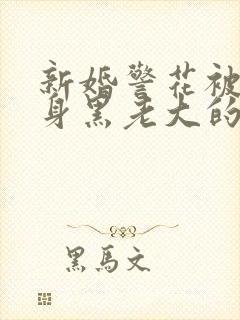 新婚警花被
身黑老大的
黑馬文